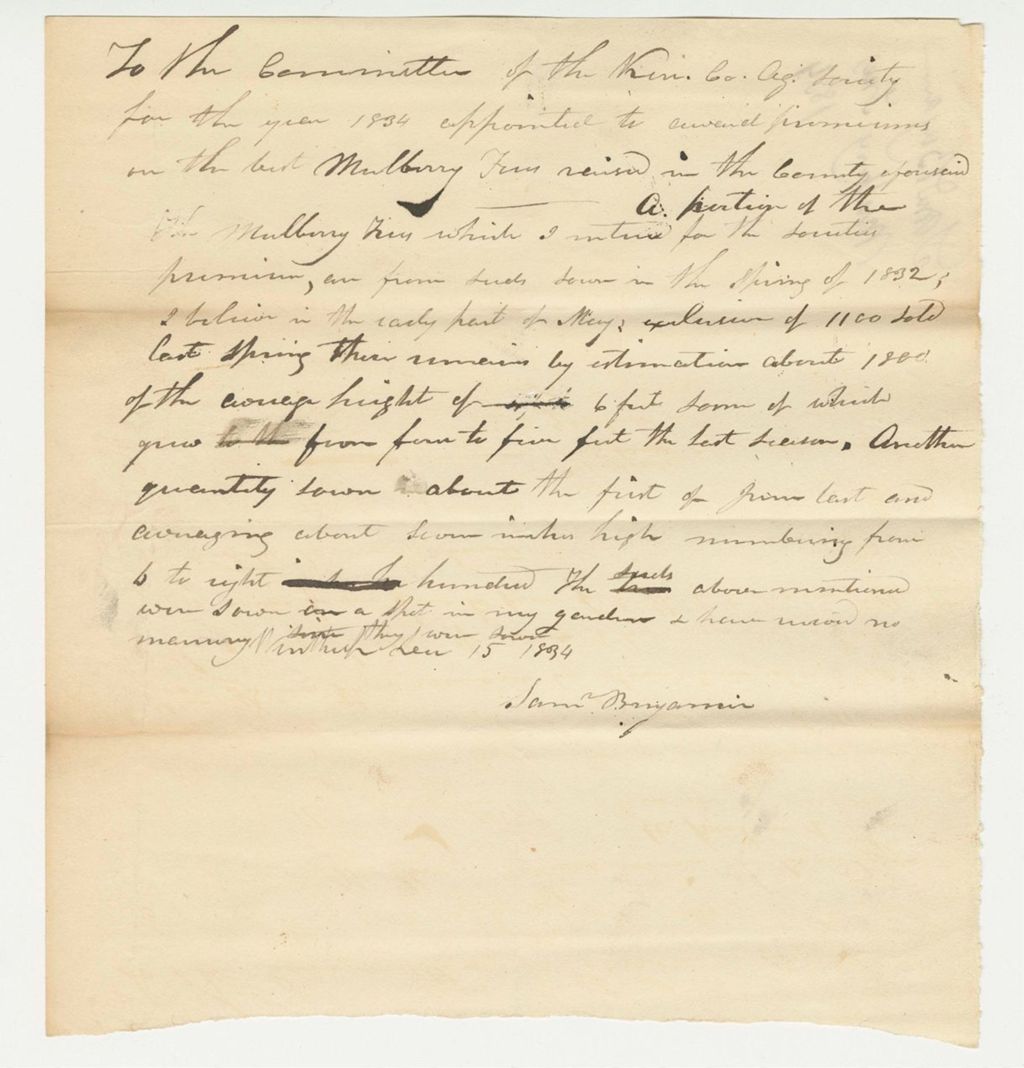 To the Committee of the Ken. Co. Ag. Society
for the year 1834 appointed to award premiums
on the best Mulberry Trees raised in the County aforesaid
A. portion of the
Mulberry Trees which I entered for the Societies
premium, are from seeds sown in the Spring of 1832;
I believe in the early part of May; exclusive of 1100 sold
last Spring there remains by estimation about 1800
of the average height of 6 feet some of which
grew to the from four to five feet the last season. Another
quantity sown about the first of June last and
averaging about seven inches high numbering from
6 to eight hundred The seeds above mentioned
were sown in a spot in my garden & have used no
manure since they were sown
Winthrop Dec 15 1834
Saml Benjamin